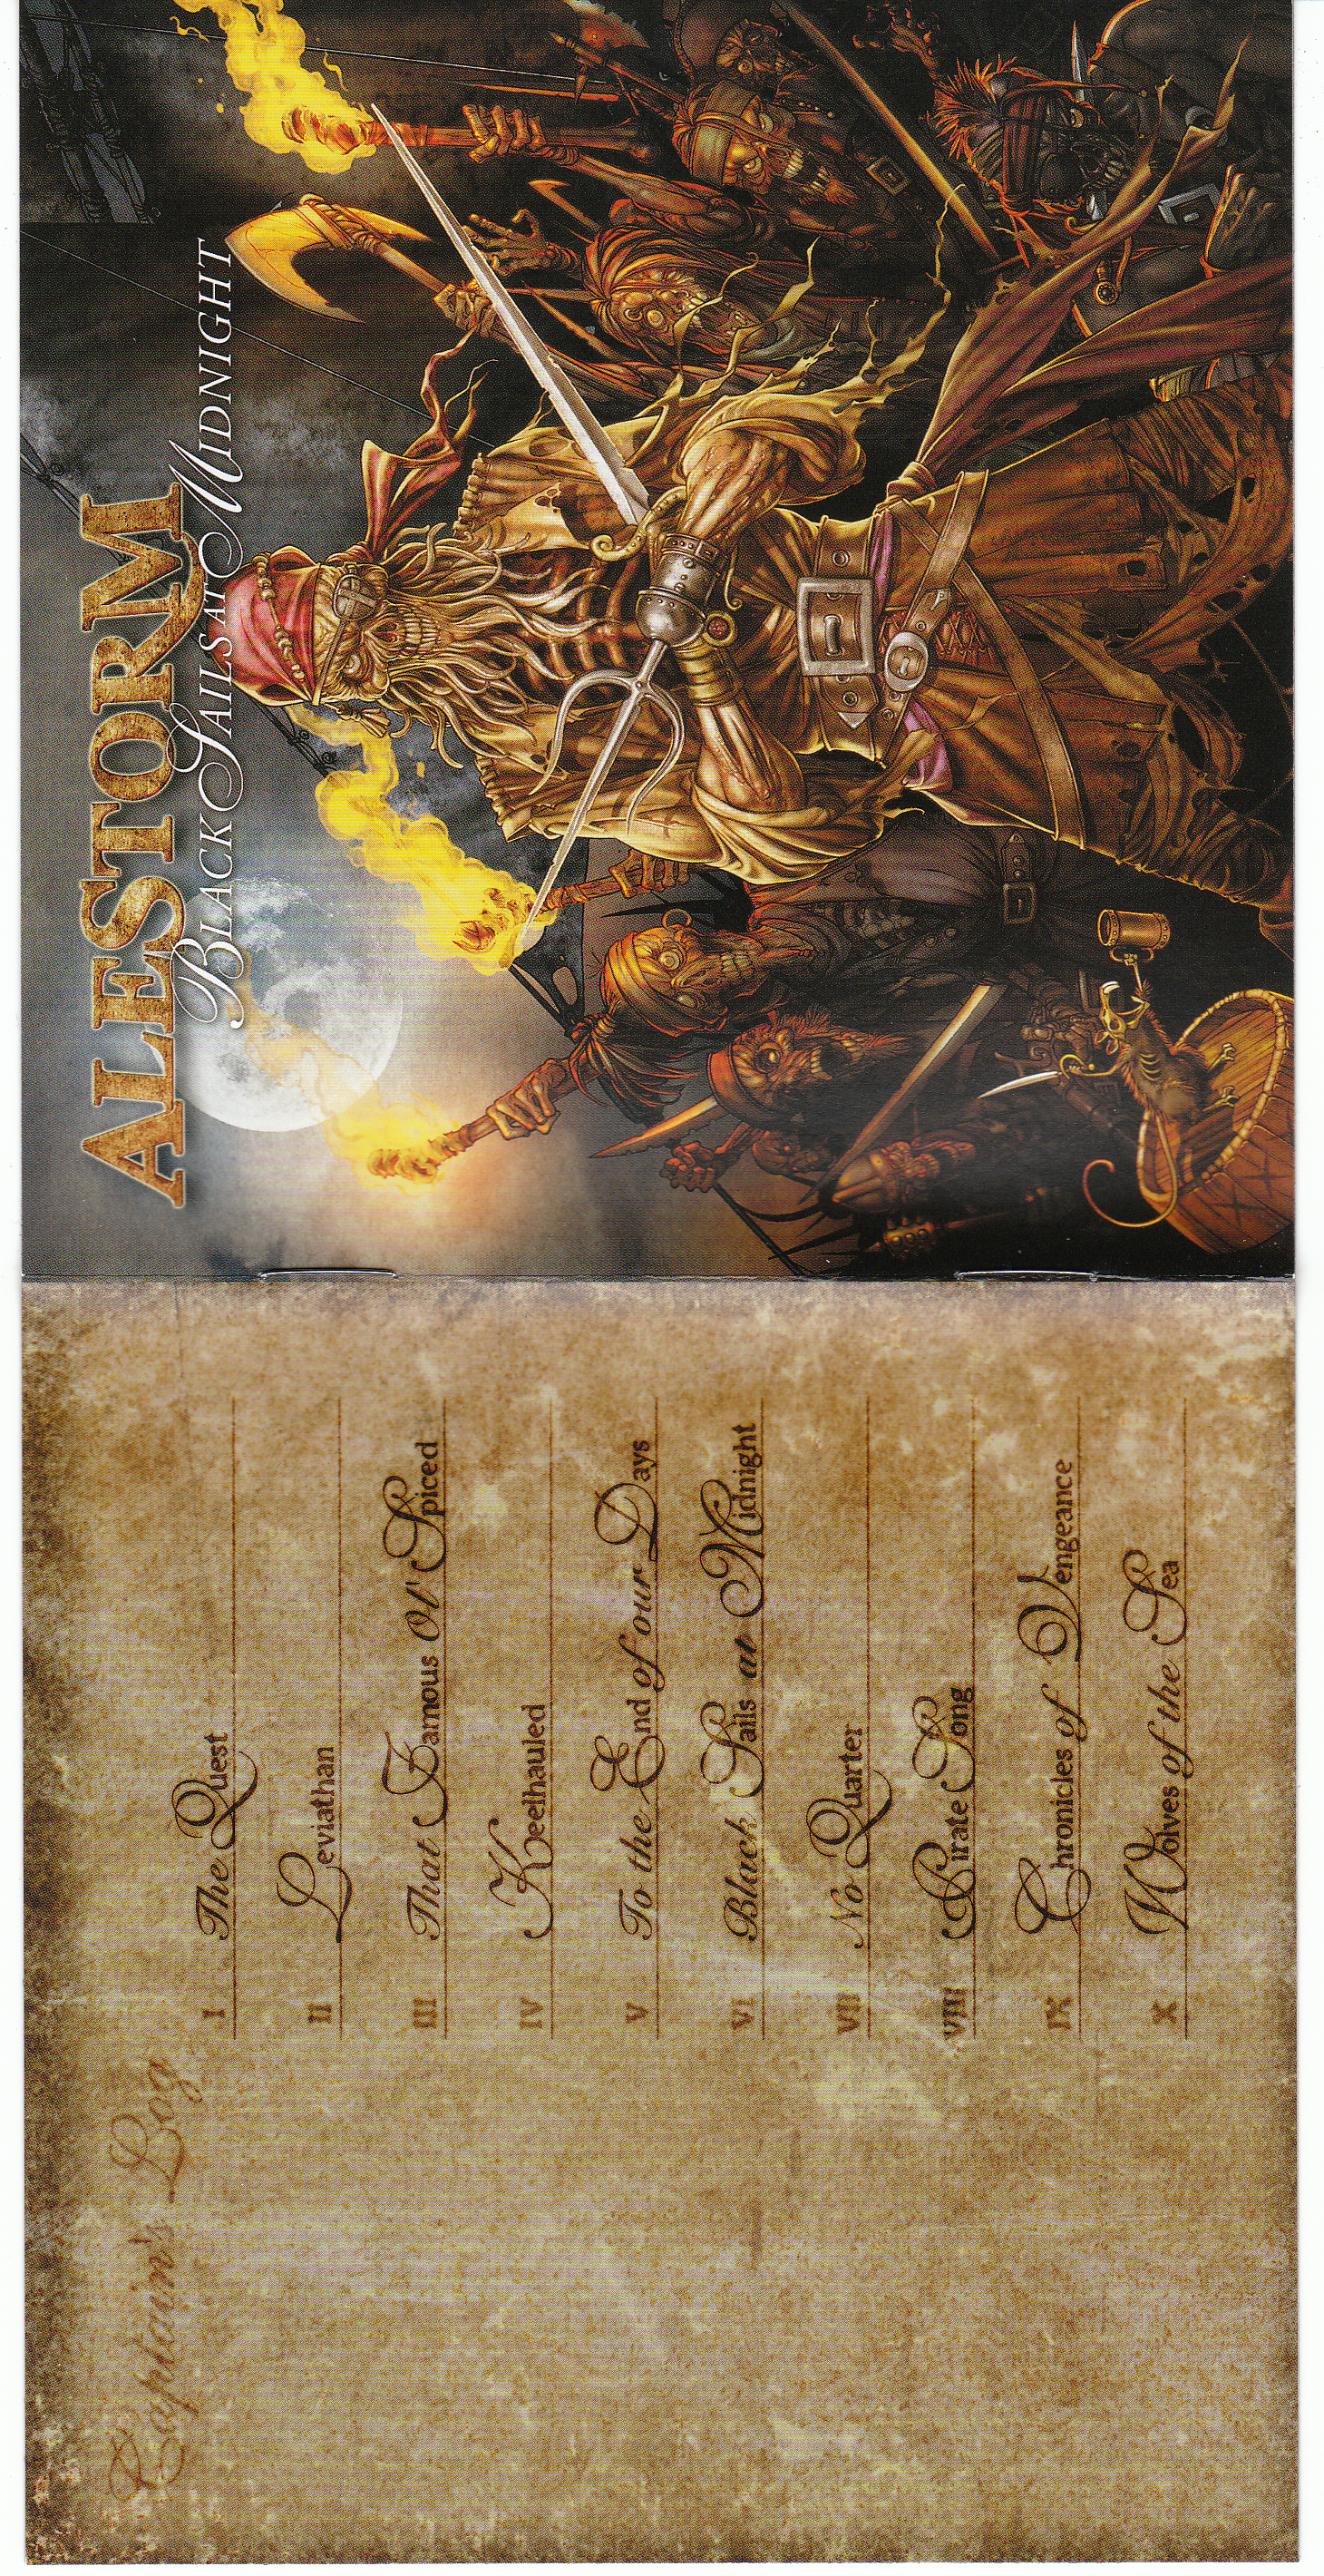 Captain's Log
I The Quest
II Leviathan
III That Famous Ol' Spiced
IV Keelhauled
V To the End of our Days
VI Black Sails at Midnight
VII No Quarter
VIII Pirate Song
IX Chronicles of Vengeance
X Wolves of the Sea
ALESTORM
BLACK SAILS AT MIDNIGHT